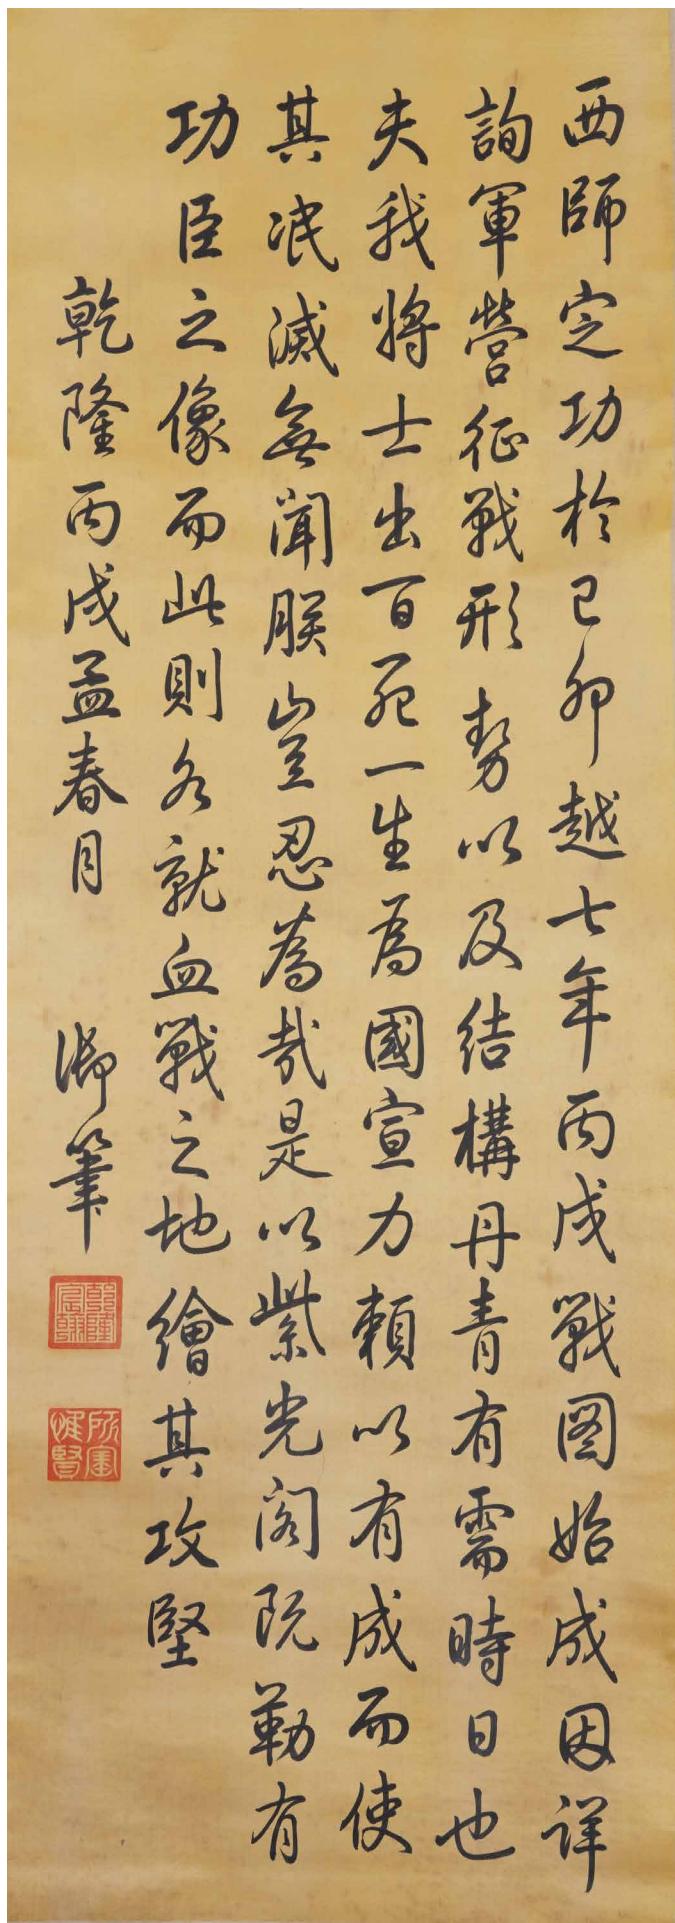 西師定功於己卯越七年丙戌戰图始成因詳
詢軍營征戰形勢以及結構丹青有需時日也
夫我將士出百死一生為國宣力賴以有成而使
其泯滅無聞朕豈忍為哉是以紫光阁既勒有
功臣之像而此則各就血戰之地繪其攻堅
乾隆丙戌孟春月 御筆
乾隆宸翰
所寶惟賢